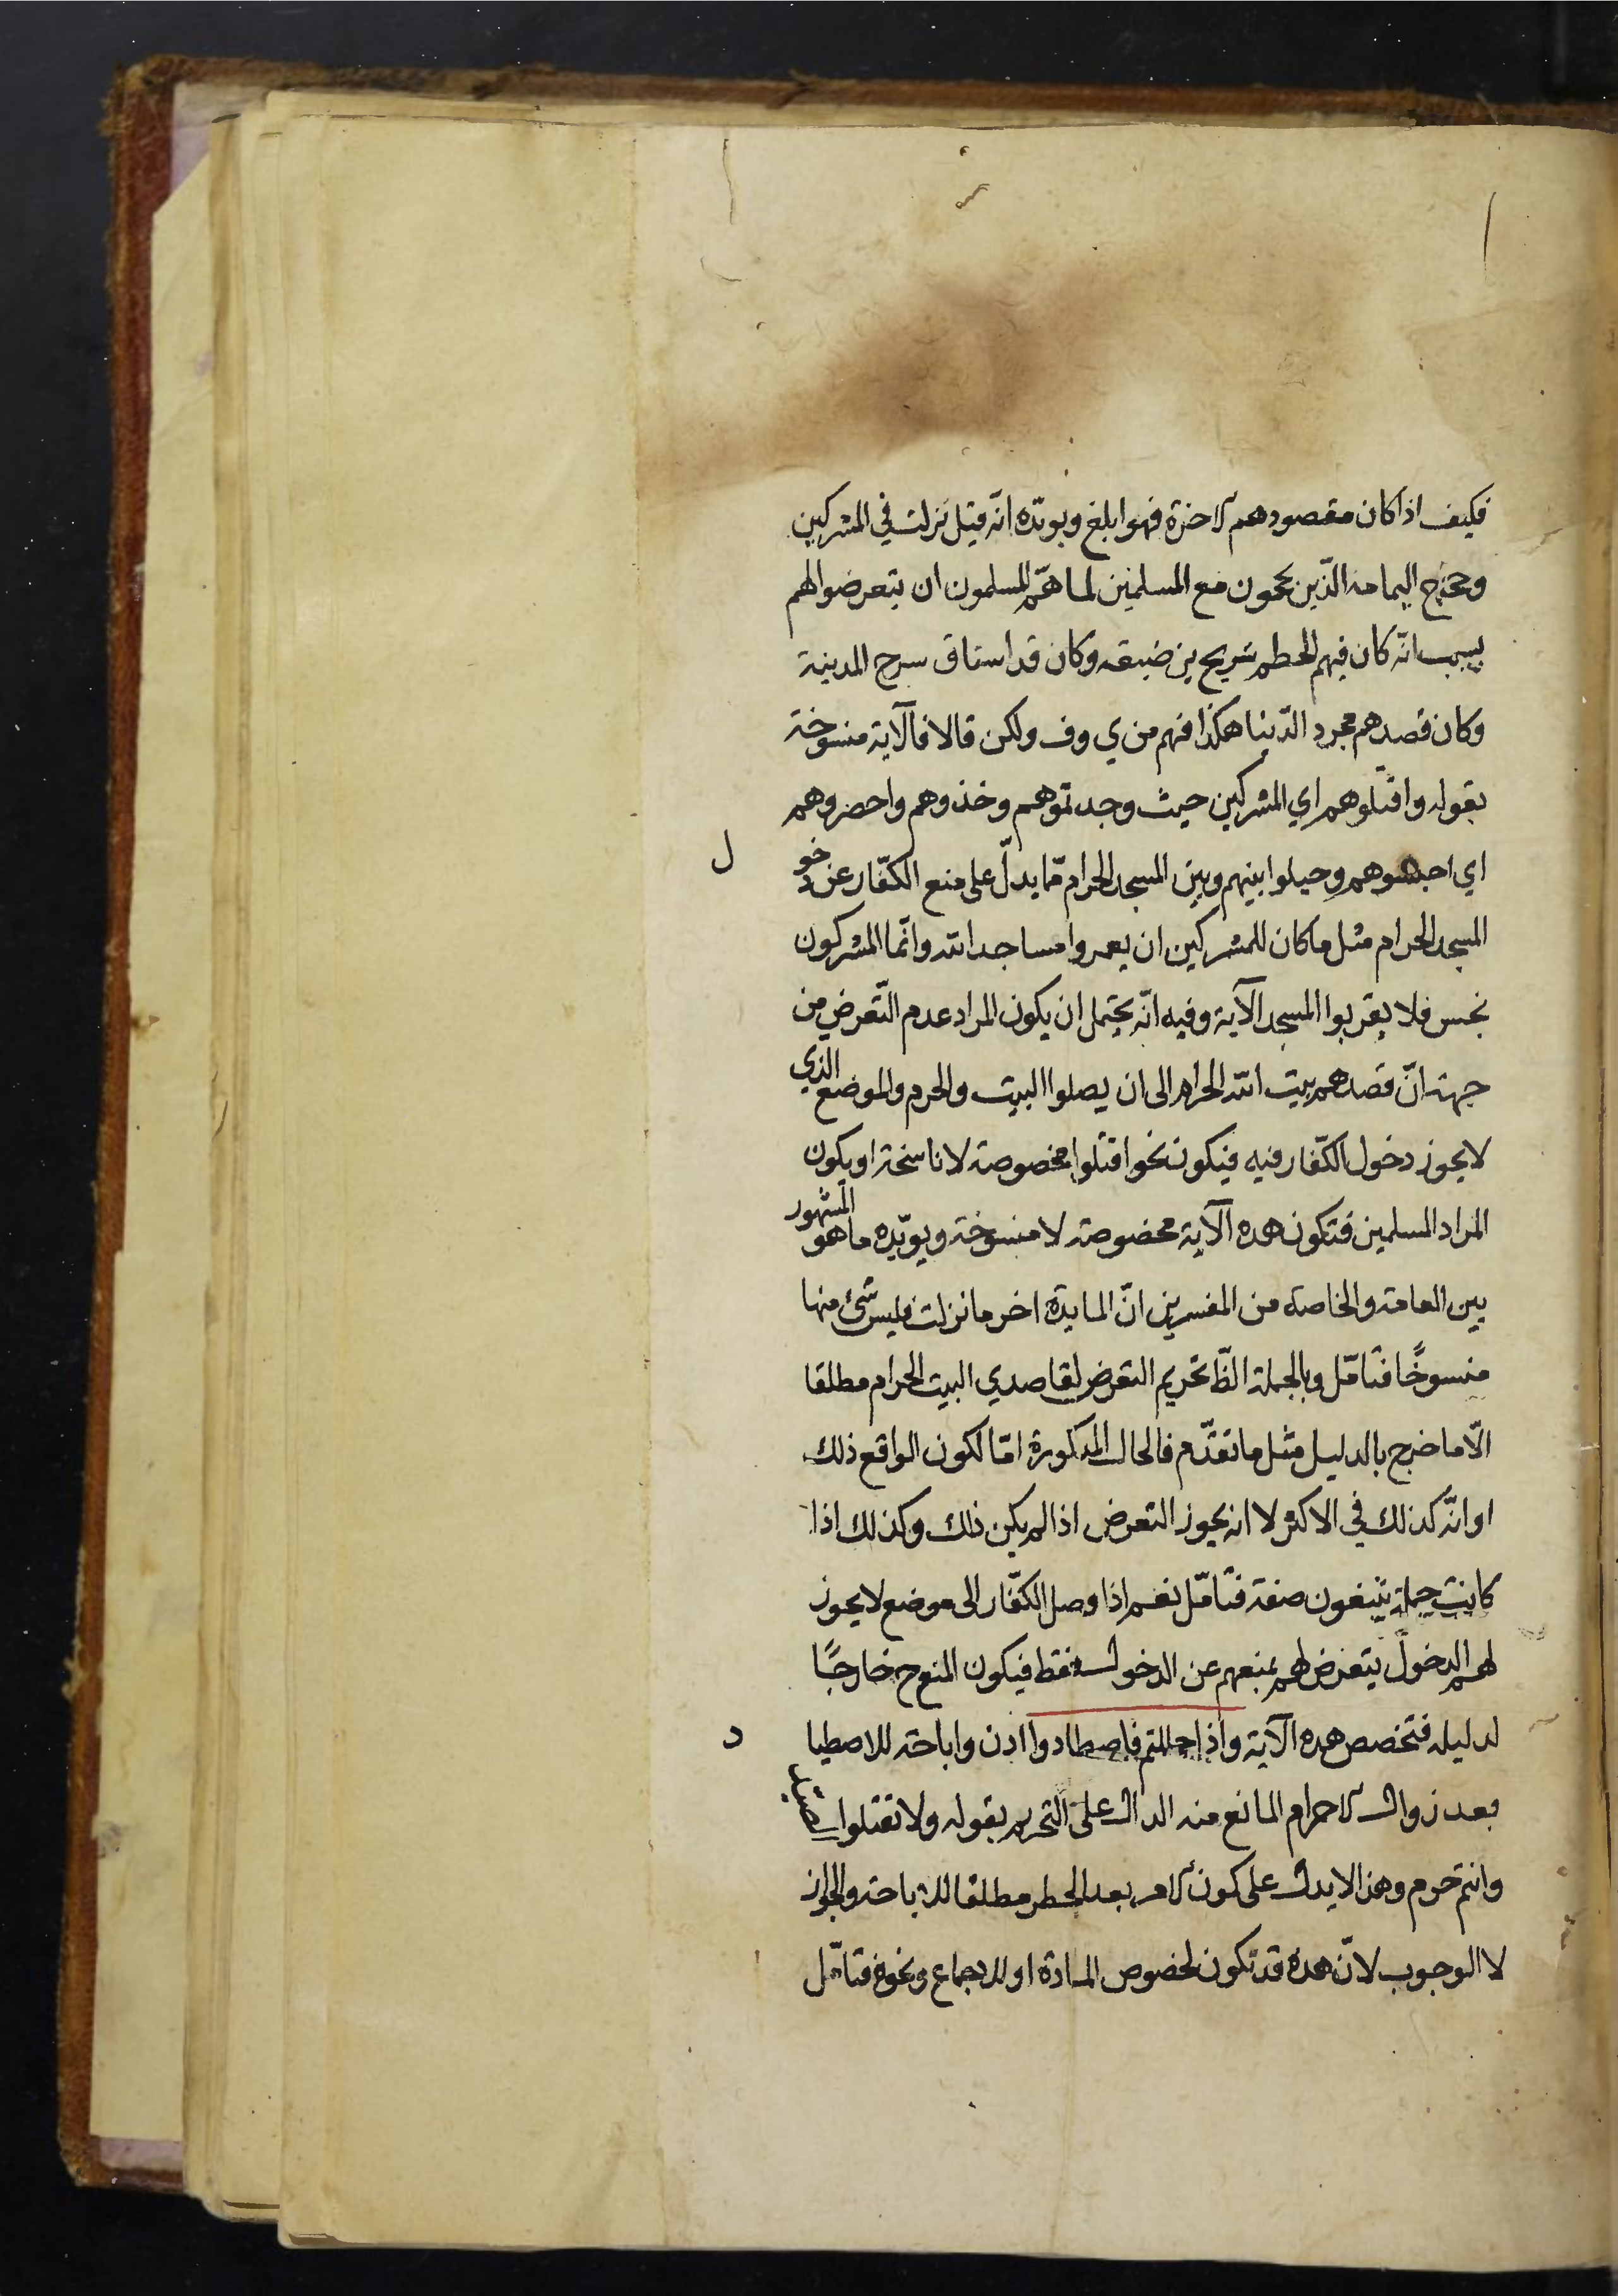 فكيف اذا كان مقصودهم الاخرة فهو ابلغ ويويّده انّه قيل نزلت في المشركين
وحجّاج اليمامه الّذين يحجون مع المسلمين لما همّ المسلمون ان يتعرضوا لهم
بسبب انّه كان فيهم الحطم شريح بن ضبيعه وكان قد استاق سرح المدينة
وكان قصدهم مجرد الدّنيا هكذا فهم من ي وف ولكن قالا فالآية منسوخة
بقوله واقتلوهم اي المشركين حيث وجدتموهم وخذوهم واحصروهم
اي احبسوهم وحيلوا بينهم وبين المسجد الحرام ممّا يدلّ على منع الكفّار عن دخول
المسجد الحرام مثل ما كان للمشركين ان يعمروا مساجد الله وانّما المشركون
نجس فلا يقربوا المسجد الآية وفيه انّه يحتمل ان يكون المراد عدم التّعرض من
جهة انّ قصدهم بيت الله الحرام الى ان يصلوا البيت والحرم والموضع الذي
لا يجوز دخول الكفّار فيه فيكون نحو اقتلوا مخصوصة لا ناسخة او يكون
المراد المسلمين فتكون هده الآية مخصوصة لا منسوخة ويويّده ما هو المشهور
بين العامة والخاصة من المفسرين انّ المايدة اخر ما نزلت فليس شئ منها
منسوخًا فتامّل وبالجملة الظّ تحريم التعرض لقاصدي البيت الحرام مطلقا
الّا ما خرج بالدليل مثل ما تقدّم فالحال المدكورة امّا لكون الواقع ذلك
او انّه كذلك في الاكثر لا انه يجوز التعرض اذا لم يكن ذلك وكذلك اذا
كانت جملة يبتغون صفة فتامّل نعم اذا وصل الكفّار الى موضع لا يجوز
لهم الدخول يتعرض لهم بمنعهم عن الدخول فقط فيكون المنع ح خارجًا
لدليله فتخصص هده الآية واذا حللتم فاصطادوا اذن واباحة للاصطياد
بعد زوال الاحرام المانع منه الدال على التحريم بقوله ولا تقتلوا الصيد
وانتم حرم وهذا لا يدل على كون الامر بعد الحظر مطلقا للاباحة والجواز
لا الوجوب لانّ هده قد تكون لخصوص المادة او للاجماع ونحوه فتامّل